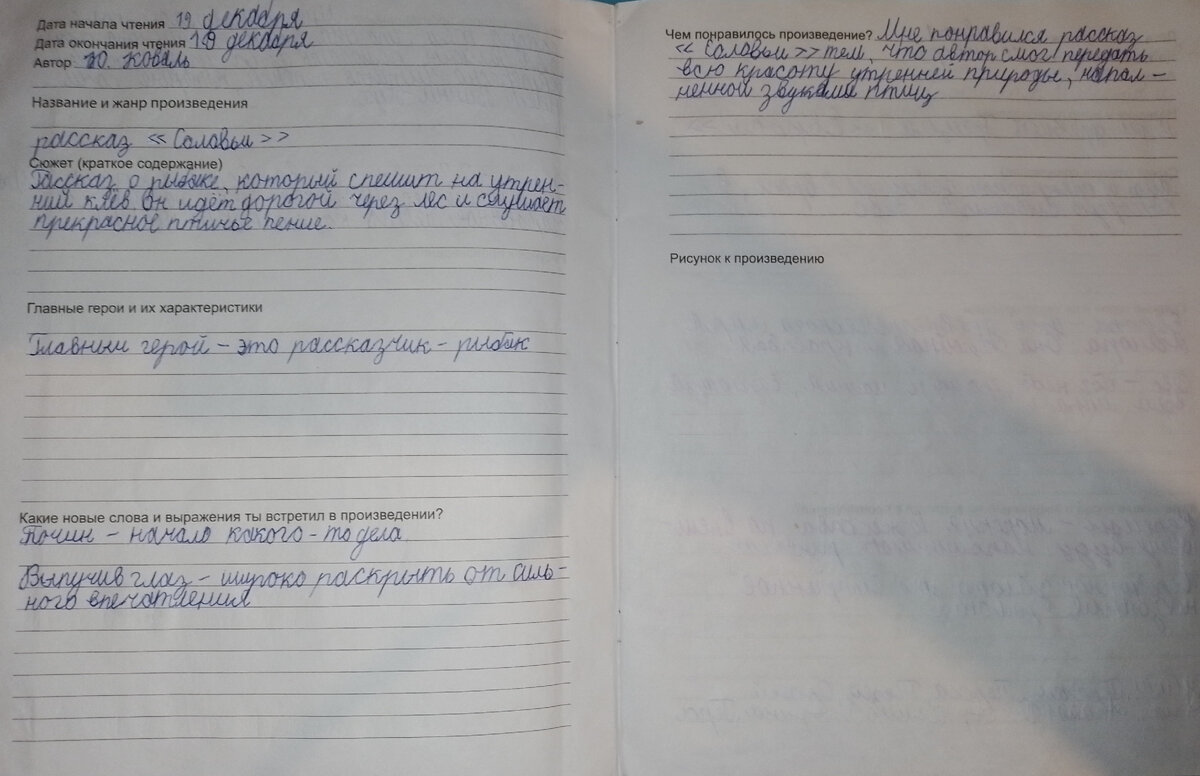 Дата начала чтения 19 декабря
Дата окончания чтения 19 декабря
Автор Ю. Коваль
Название и жанр произведения
рассказ «Соловьи»
Сюжет (краткое содержание)
Рассказ о рыбаке, который спешит на утрен-
ний клёв. он идёт дорогой через лес и слушает
прекрасное птичье пение.
Главные герои и их характеристики
Главный герой - это рассказчик - рыбак
Какие новые слова и выражения ты встретил в произведении?
Почин - начало какого-то дела.
Выпучив глаз - широко раскрыть от силь-
ного впечатления
Чем понравилось произведение? Мне понравился рассказ
«Соловьи» тем, что автор смог передать
всю красоту утренней природы, напол-
ненной звуками птиц
Рисунок к произведению